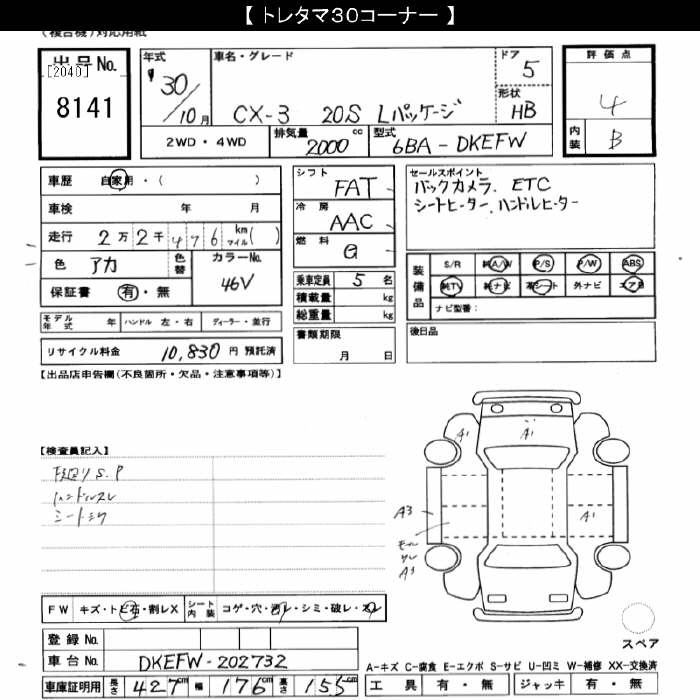 【 トレタマ30コーナー 】
(複合機)対応用紙
出品No.
[2040]
8141
年式
30/10月
車名・グレード
CX-3 20S Lパッケージ
ドア
5
形状
HB
評価点
4
内装
B
2WD・4WD
排気量
2000 cc
型式
6BA-DKEFW
車歴 自家用・( )
車検 年 月
走行 2万2千476 km マイル( )
色 アカ
色替
カラーNo.
46V
保証書 有・無
シフト
FAT
冷房
AAC
燃料
G
乗車定員 5 名
積載量 kg
総重量 kg
書類期限
月 日
セールスポイント
バックカメラ、ETC
シートヒーター、ハンドルヒーター
装備品
S/R 純A/W P/S P/W ABS
純TV 純ナビ 革シート 外ナビ エアB
ナビ型番:
後日品
モデル年式 年 ハンドル 左・右 ディーラー・並行
リサイクル料金 10,830 円 預託済
【出品店申告欄(不良箇所・欠品・注意事項等)】
【検査員記入】
下廻りS.P
ハンドルスレ
シート
A1
A1
A3
A1
モール
A3
FW キズ・トビ石・割レX シート内装 コゲ・穴・汚レ・シミ・破レ・スレ
登録No.
車台No. DKEFW-202732
車庫証明用 長さ 427cm 幅 176cm 高さ 155cm
スペア
A-キズ C-腐食 E-エクボ S-サビ U-凹ミ W-補修 XX-交換済
工具 有・無 ジャッキ 有・無